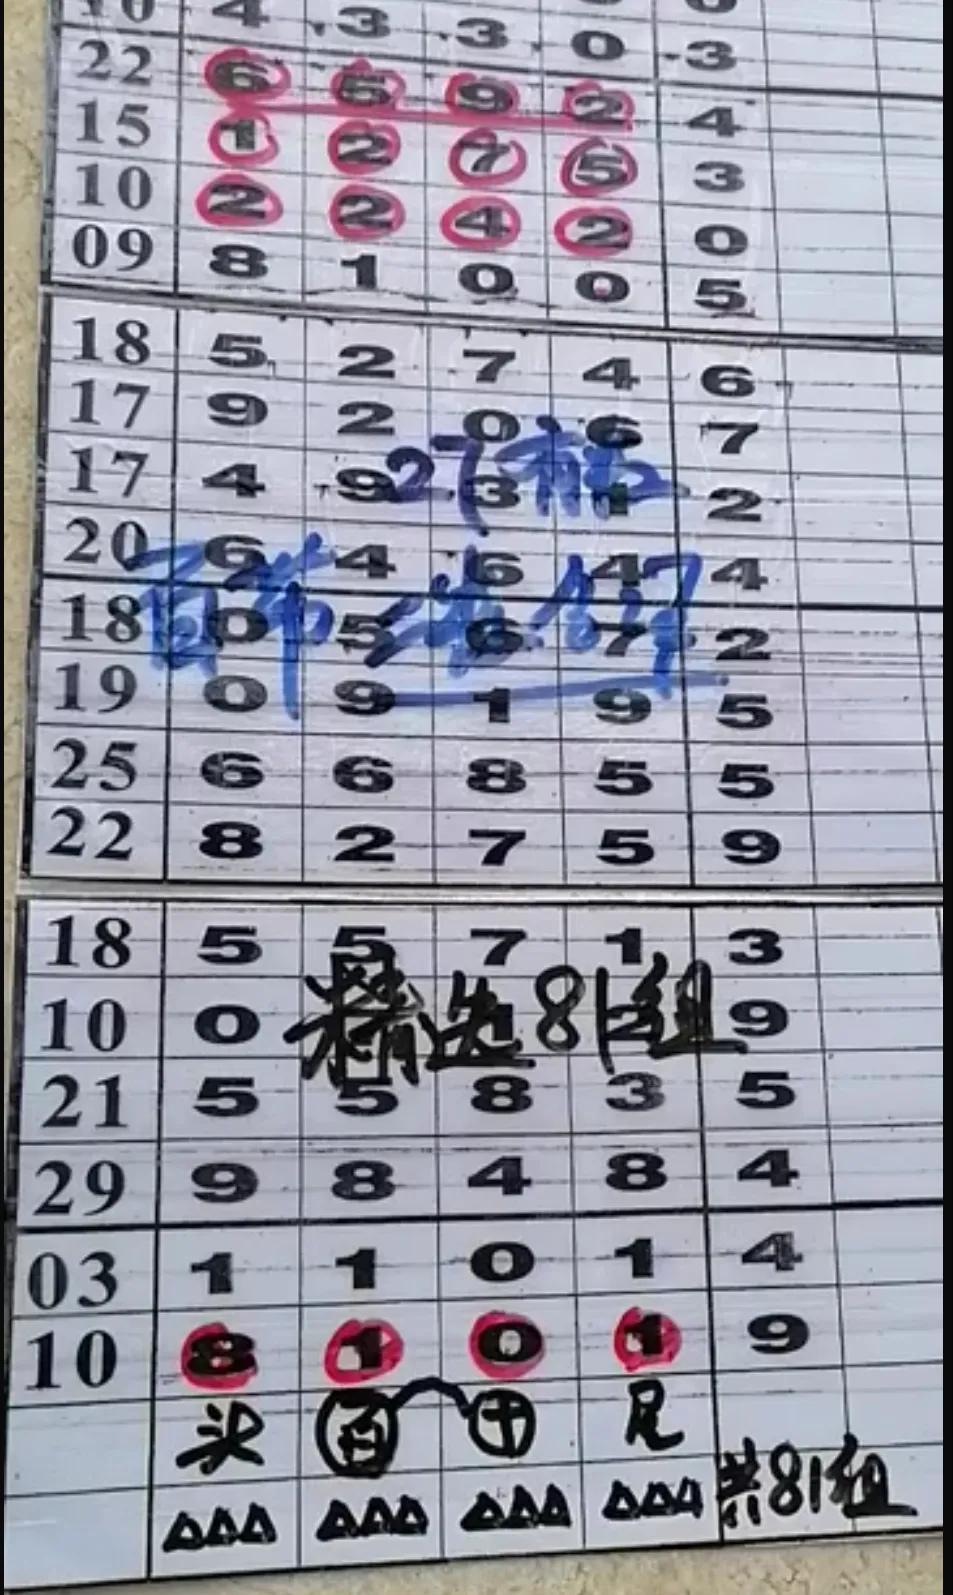 10 4 3 3 0 3
22 6 5 9 2 4
15 1 2 7 5 3
10 2 2 4 2 0
09 8 1 0 0 5
18 5 2 7 4 6
17 9 2 0 6 7
27
17 4 9 3 1 2
20 6 4 6 4 4
18 0 5 6 7 2
19 0 9 1 9 5
25 6 6 8 5 5
22 8 2 7 5 9
18 5 5 7 1 3
精选81组
10 0 1 2 9
21 5 5 8 3 5
29 9 8 4 8 4
03 1 1 0 1 4
10 8 1 0 1 9
头 百 十 尾
△△△ △△△ △△△ △△△ 共81组